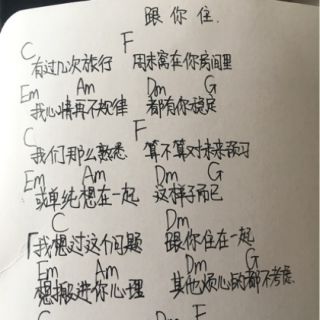 跟你住.
C F
有过几次旅行 周末窝在你房间里
Em Am Dm G
我心情再不规律 都有你搞定
C F
我们那么熟悉 算不算对未来预习
Em Am Dm G
或单纯想在一起 这样子而已
C Dm
「我想过这个问题 跟你住在一起
Em Am Dm G
想搬进你心理 其他烦心的都不考虑
C Dm F